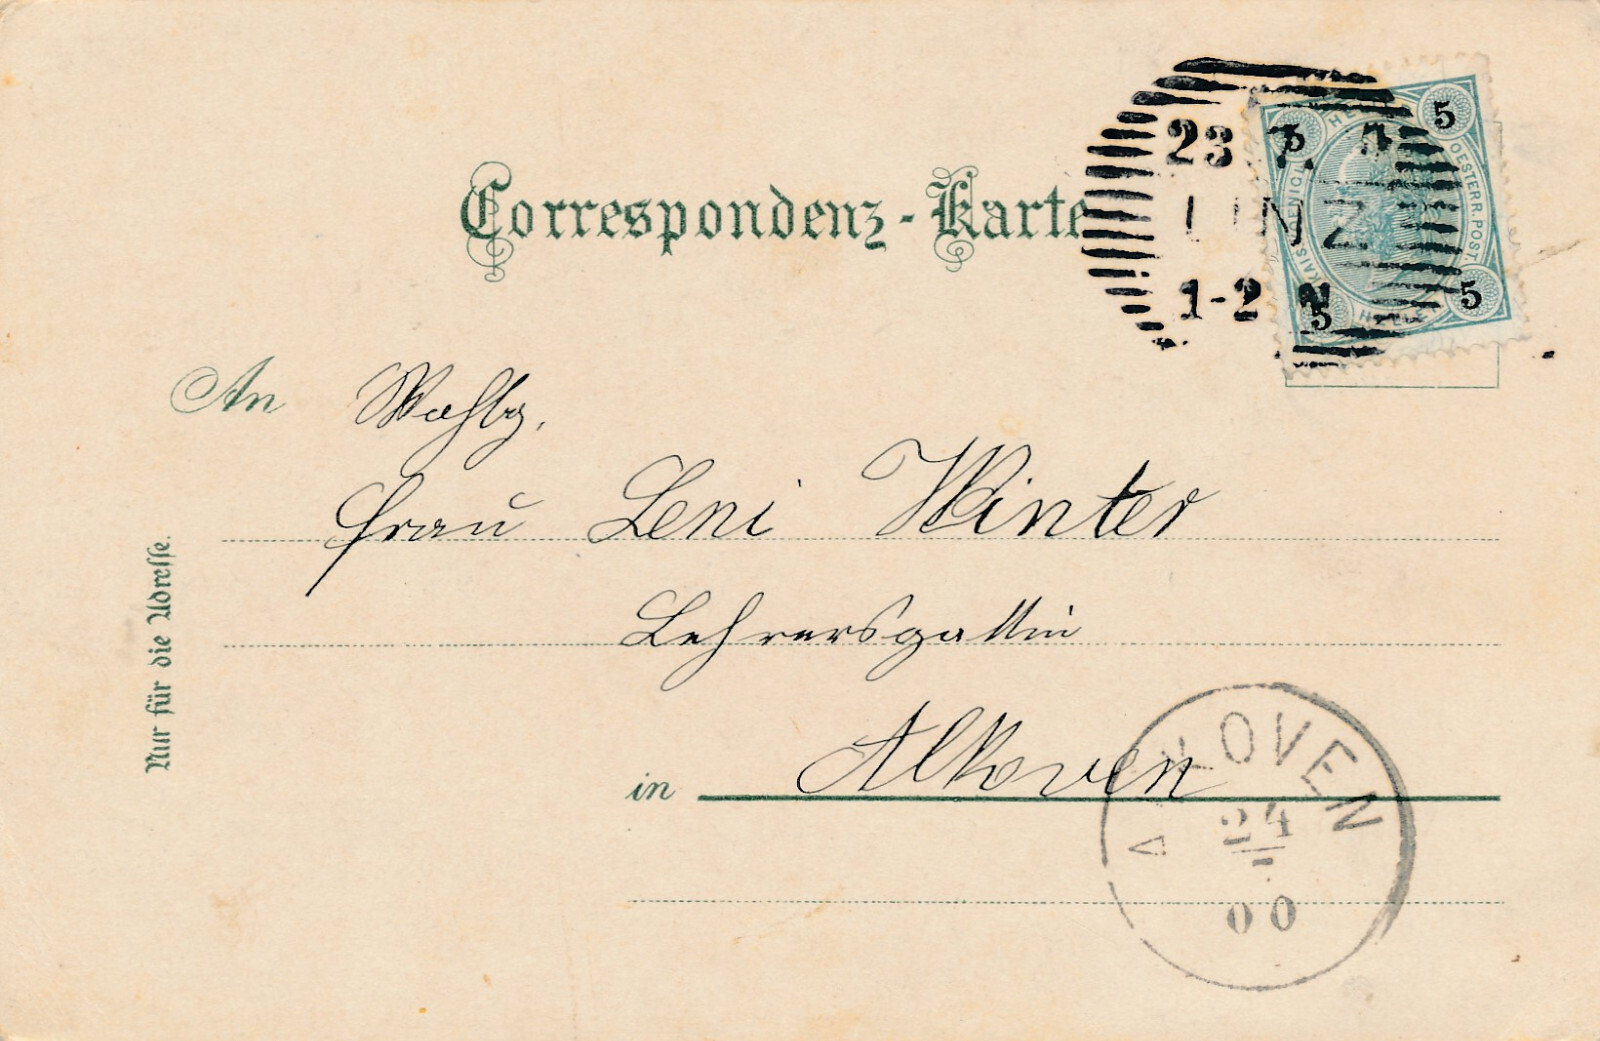 Correspondenz-Karte
23. 7.
LINZ
1-2 N
5
5
5
5
KAISERL. KÖNIGL.
OESTERR. POST.
HELLER
HELLER
An Wohlg.
Frau Leni Winter
Lehrersgattin
in Alkoven
ALKOVEN
24
00
Nur für die Adresse.